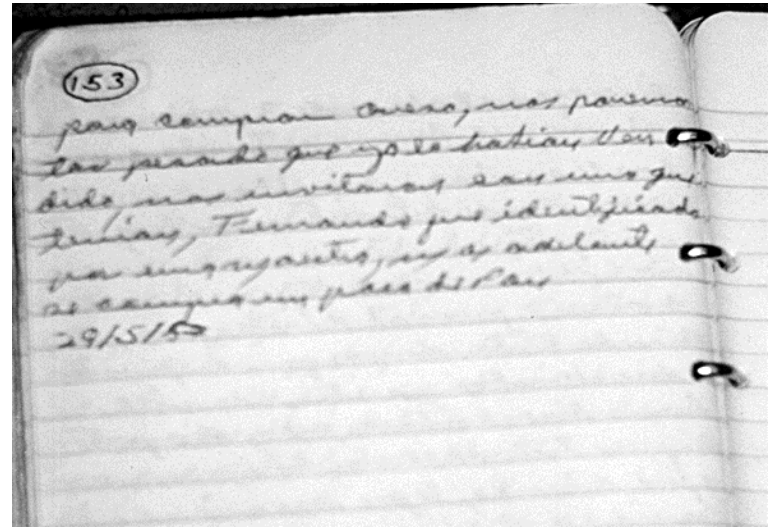 153
para comprar queso, nos
que ya se habian ven
dido, nos invitaron con uno que
tenian, Fernando fue identificado
por uno, mas adelante
se compra un poco de Pan
29/5/